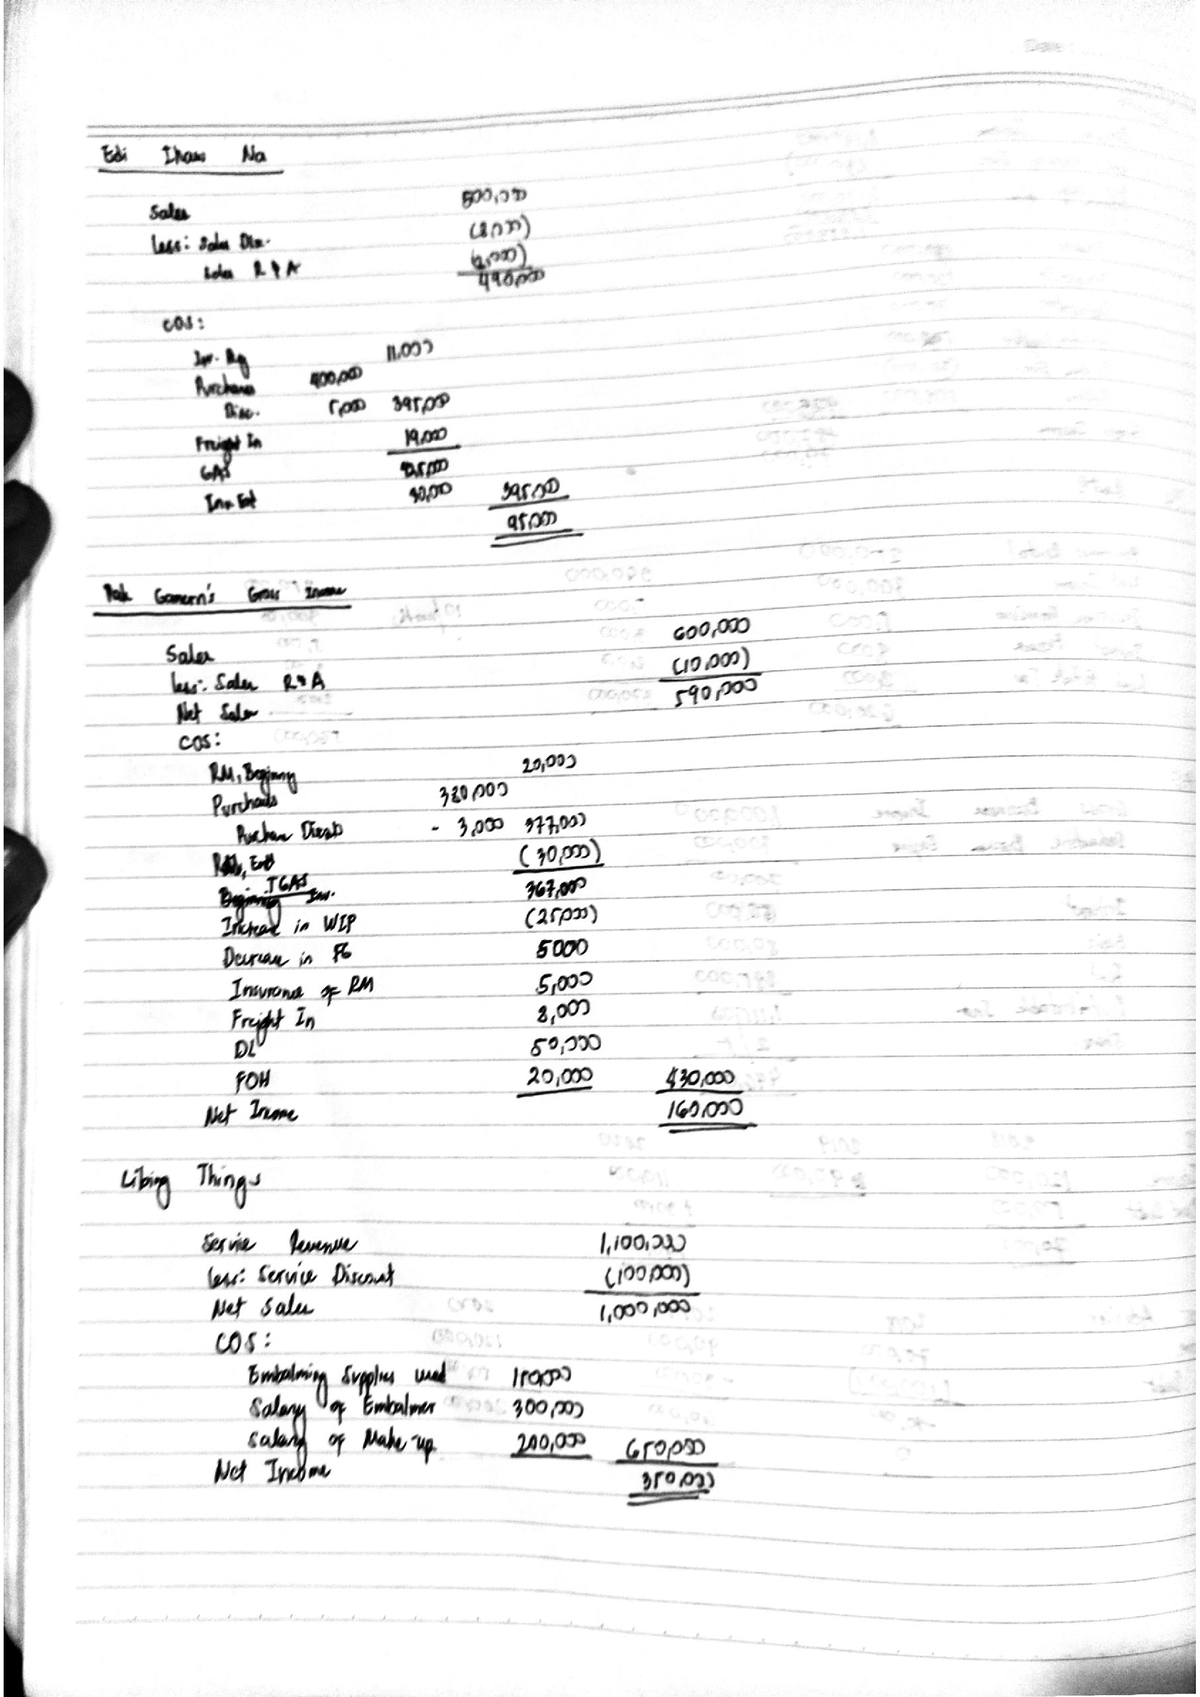 Edi Ihaw Na
Sales 500,000
Less: Sales Disc. (8,000)
Sales R & A (2,000)
490,000
COS:
Inv. Beg 11,000
Purchases 400,000
Disc. 5,000 395,000
Freight In 19,000
GAS 425,000
Inv. End 30,000 395,000
95,000
Gross Income
Sales 600,000
less: Sales R & A (10,000)
Net Sales 590,000
COS:
RM, Beginning 20,000
Purchases 380,000
Purchase Discounts - 3,000 377,000
RM, End (30,000)
TGAS 367,000
Increase in WIP (25,000)
Decrease in FG 5000
Insurance of RM 5,000
Freight In 8,000
DL 50,000
FOH 20,000 430,000
Net Income 160,000
Libing Things
Service Revenue 1,100,000
less: Service Discount (100,000)
Net Sales 1,000,000
COS:
Embalming Supplies used 150,000
Salary of Embalmer 300,000
Salary of Make-up 200,000 650,000
Net Income 350,000